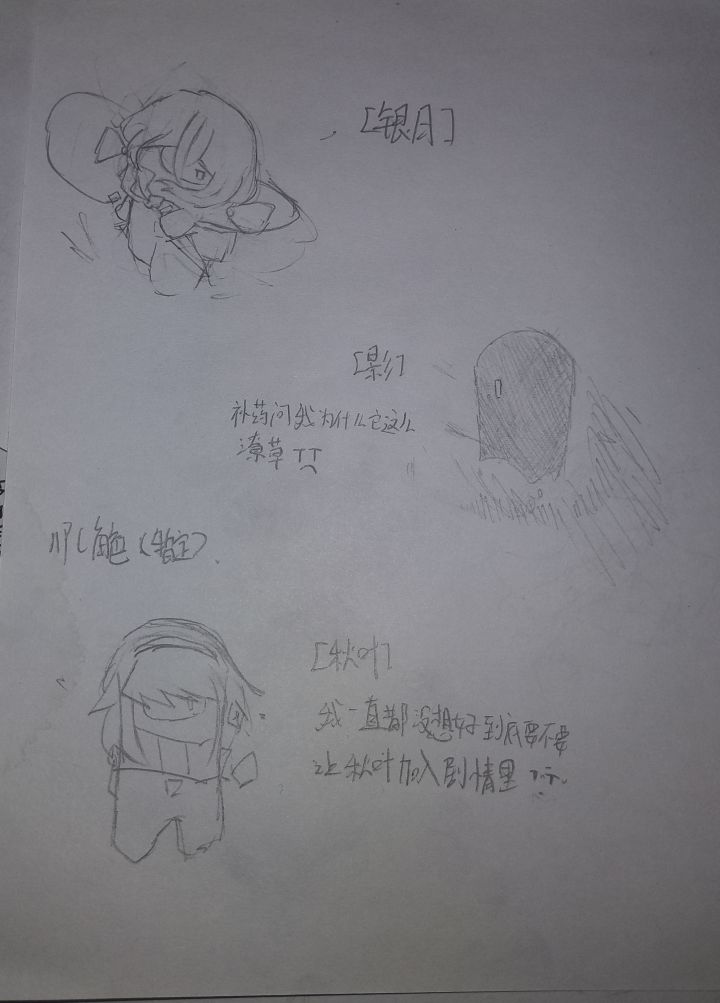 [银月]
[影]
补药问我为什么它这么
潦草 TT
角色(暂定).
[秋叶]
我一直都没想好到底要不要
让秋叶加入剧情里